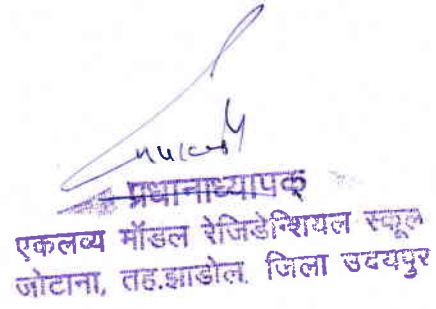 प्रधानाध्यापक
एकलव्य मॉडल रेजिडेन्शियल स्कूल
जोटाना, तह.झाडोल. जिला उदयपुर